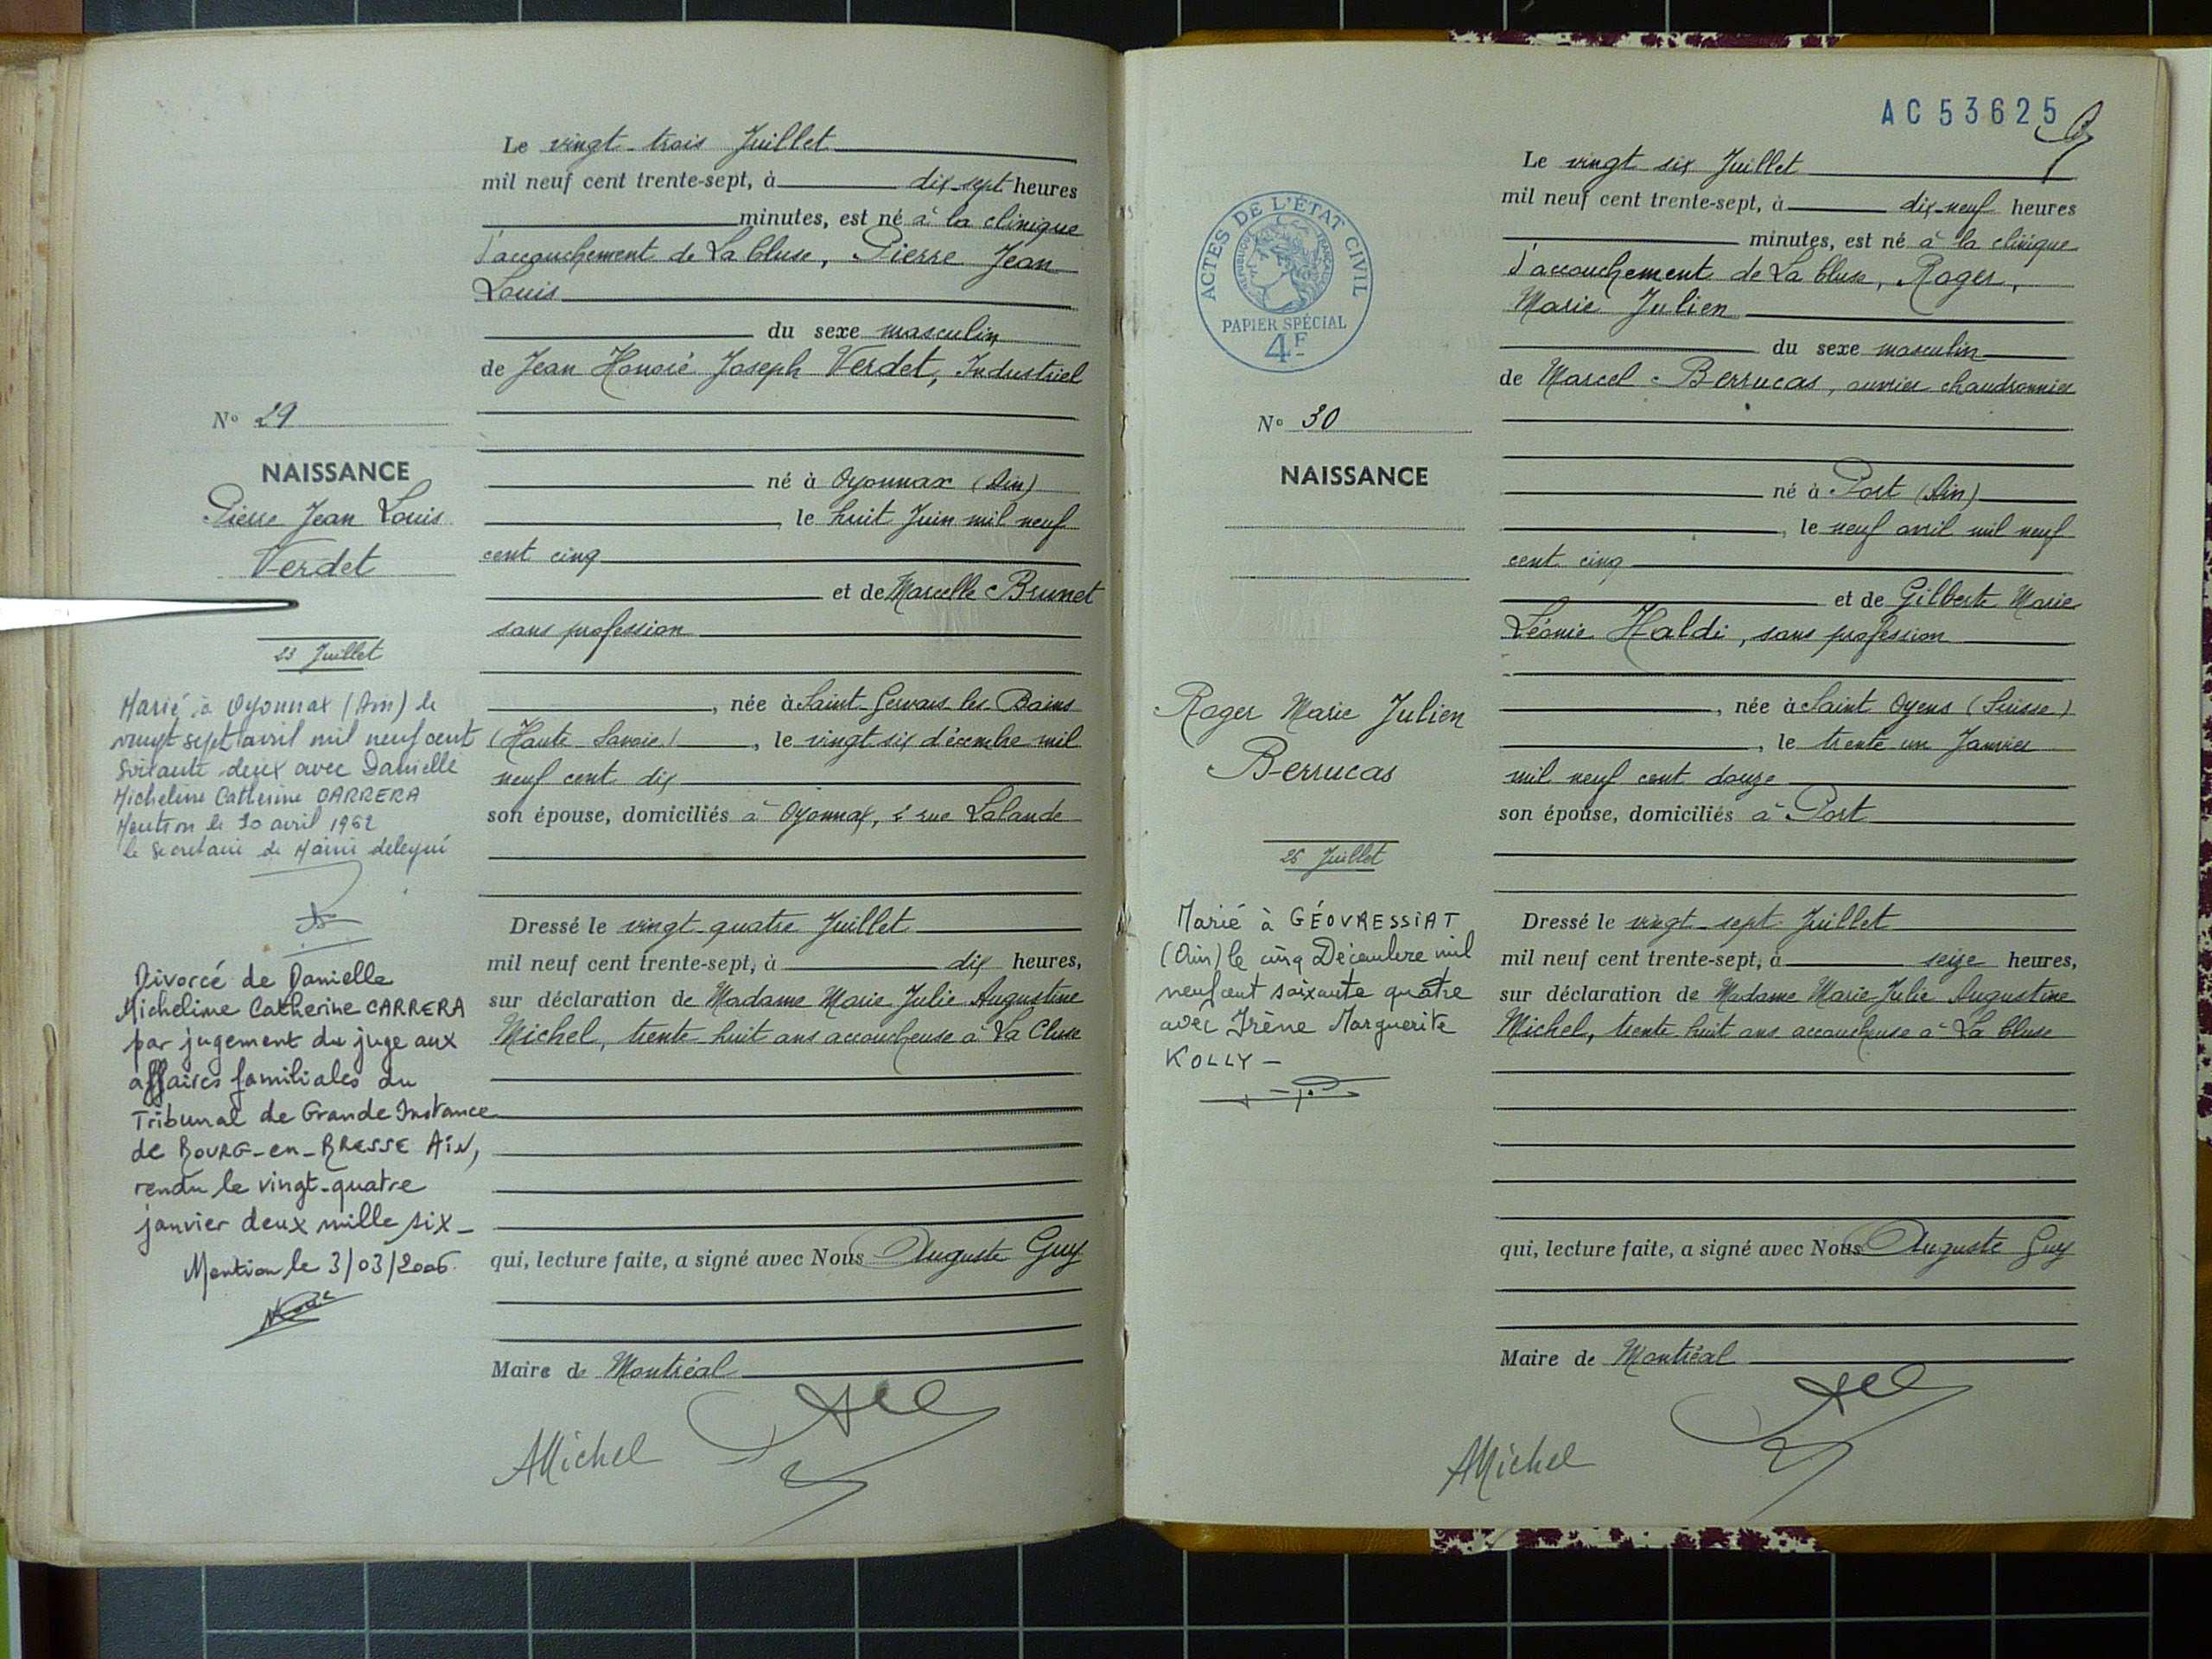 Le vingt-trois Juillet
mil neuf cent trente-sept, à dix-sept heures
minutes, est né à la clinique
d'accouchement de La Cluse, Pierre Jean
Louis
du sexe masculin
de Jean Honoré Joseph Verdet, Industriel
né à Oyonnax (Ain)
, le huit Juin mil neuf
cent cinq
et de Marcelle Brunet
sans profession
, née à Saint-Gervais les-Bains
(Haute-Savoie), le vingt six décembre mil
neuf cent dix
son épouse, domiciliés à Oyonnax, 2 rue Lalande
Dressé le vingt-quatre Juillet
mil neuf cent trente-sept, à dix heures,
sur déclaration de Madame Marie Julie Augustine
Michel, trente-huit ans accoucheuse à La Cluse
qui, lecture faite, a signé avec Nous Auguste Guy
Maire de Montréal
AMichel
No 29
NAISSANCE
Pierre Jean Louis
Verdet
23 Juillet
Marié à Oyonnax (Ain) le
vingt sept avril mil neuf cent
soixante-deux avec Danielle
Micheline Catherine CARRERA
Mention le 30 avril 1962
le secrétaire de Mairie délégué
Divorcé de Danielle
Micheline Catherine CARRERA
par jugement du juge aux
affaires familiales du
Tribunal de Grande Instance
de BOURG-en-BRESSE AiN,
rendu le vingt-quatre
janvier deux mille six-
Mention le 3/03/2006.
AC 53625
Le vingt six Juillet
mil neuf cent trente-sept, à dix-neuf heures
minutes, est né à la clinique
d'accouchement de La Cluse, Roger,
Marie Julien
du sexe masculin
de Marcel Berrucas, ouvrier chaudronnier
né à Port (Ain)
, le neuf avril mil neuf
cent cinq
et de Gilberte Marie
Léonie Haldi, sans profession
, née à Saint Oyens (Suisse)
, le trente un Janvier
mil neuf cent douze
son épouse, domiciliés à Port
Dressé le vingt-sept Juillet
mil neuf cent trente-sept, à seize heures,
sur déclaration de Madame Marie-Julie Augustine
Michel, trente huit ans accoucheuse à La Cluse
qui, lecture faite, a signé avec Nous Auguste Guy
Maire de Montréal
AMichel
ACTES DE L'ÉTAT CIVIL
RÉPUBLIQUE FRANÇAISE
PAPIER SPÉCIAL
4F
No 30
NAISSANCE
Roger Marie Julien
Berrucas
26 Juillet
Marié à GÉOVRESSIAT
(Ain) le cinq Décembre mil
neuf cent soixante quatre
avec Irène Marguerite
KOLLY-